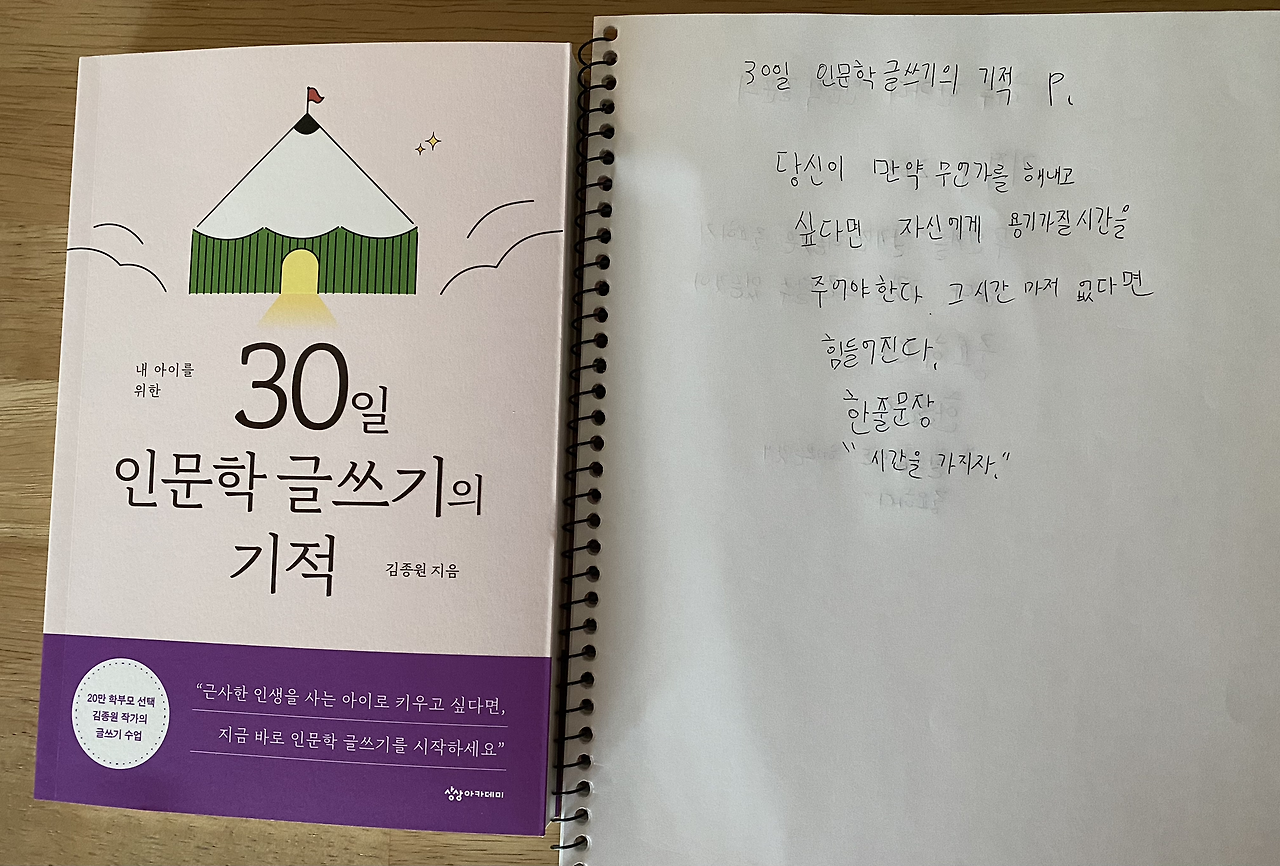 내 아이를
위한
30일
인문학 글쓰기의
기적
김종원 지음
20만 학부모 선택
김종원 작가의
글쓰기 수업
“근사한 인생을 사는 아이로 키우고 싶다면,
지금 바로 인문학 글쓰기를 시작하세요”
상상아카데미
30일 인문학 글쓰기의 기적 P.
당신이 만약 무언가를 해내고
싶다면 자신에게 용기가질시간을
주어야한다. 그 시간 마저 없다면
힘들어진다.
한줄문장
"시간을 가지자."